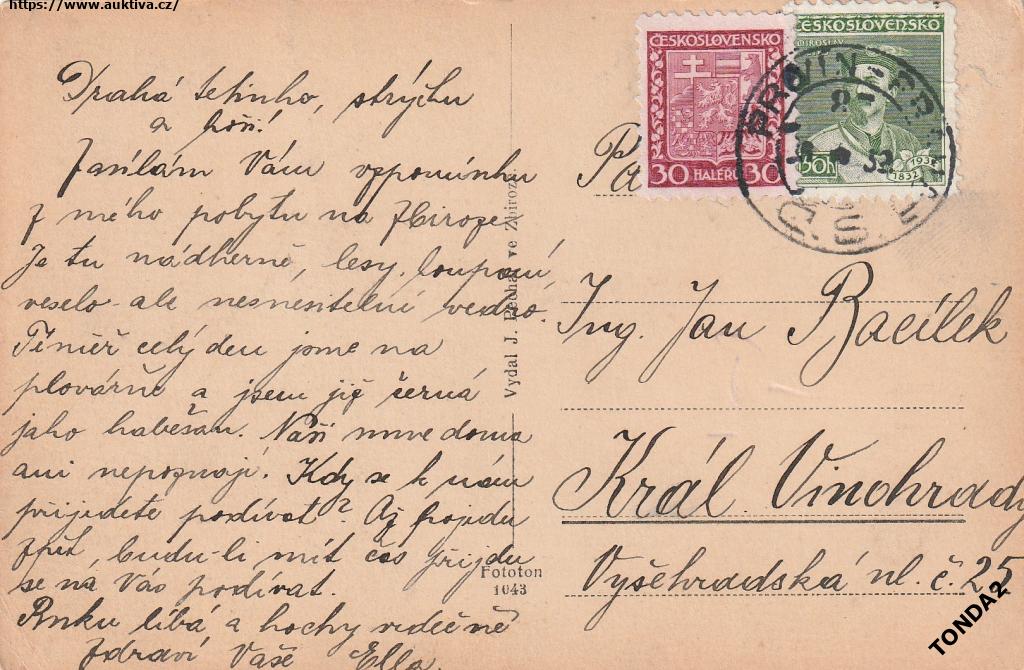 https://www.auktiva.cz/
Drahá tetinko, strýčku
a hoši!
Zasílám Vám vzpomínku
z mého pobytu na Zbiroze
Je tu nádherně, lesy, koupání,
veselo ale nesnesitelní vedro.
Téměř celý den jsme na
plovárně a jsem již černá
jako habešan. Naši mne doma
ani nepoznají. Kdy se k nám
přijedete podívat? Až pojedu
zpět, budu-li mít čas přijdu
se na Vás podívat.
Ruku líbá a hochy srdečně
zdraví Vaše Ella.
Vydal J. Pechát ve Zbiroze
Fototon
1043
ČESKOSLOVENSKO
30 HALÉŘŮ 30
ČESKOSLOVENSKO
MIROSLAV
50h
1932
1832
Pa
Ing. Jan Bacílek
Král. Vinohrady
Vyšehradská ul. č. 25
TONDA2